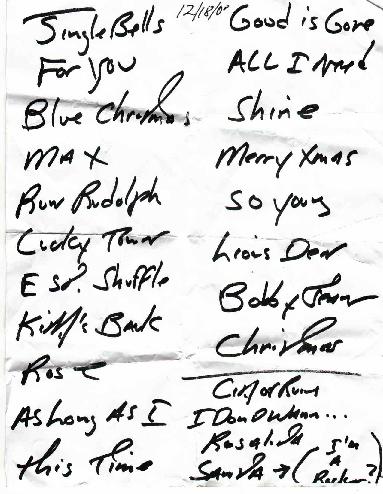 12/18/0
Jingle Bells
For You
Blue Christmas
MAX
Run Rudolph
Lucky Town
E St. Shuffle
Kitty's Back
Rosie
As Long As I
This Time
Good is Gone
ALL I Need
Shine
Merry Xmas
So young
Lions Den
Bobby Jean
Christmas
City of Ruins
I Don't Wanna...
Rosalita
SANTA → (I'm
A
Rocker?)